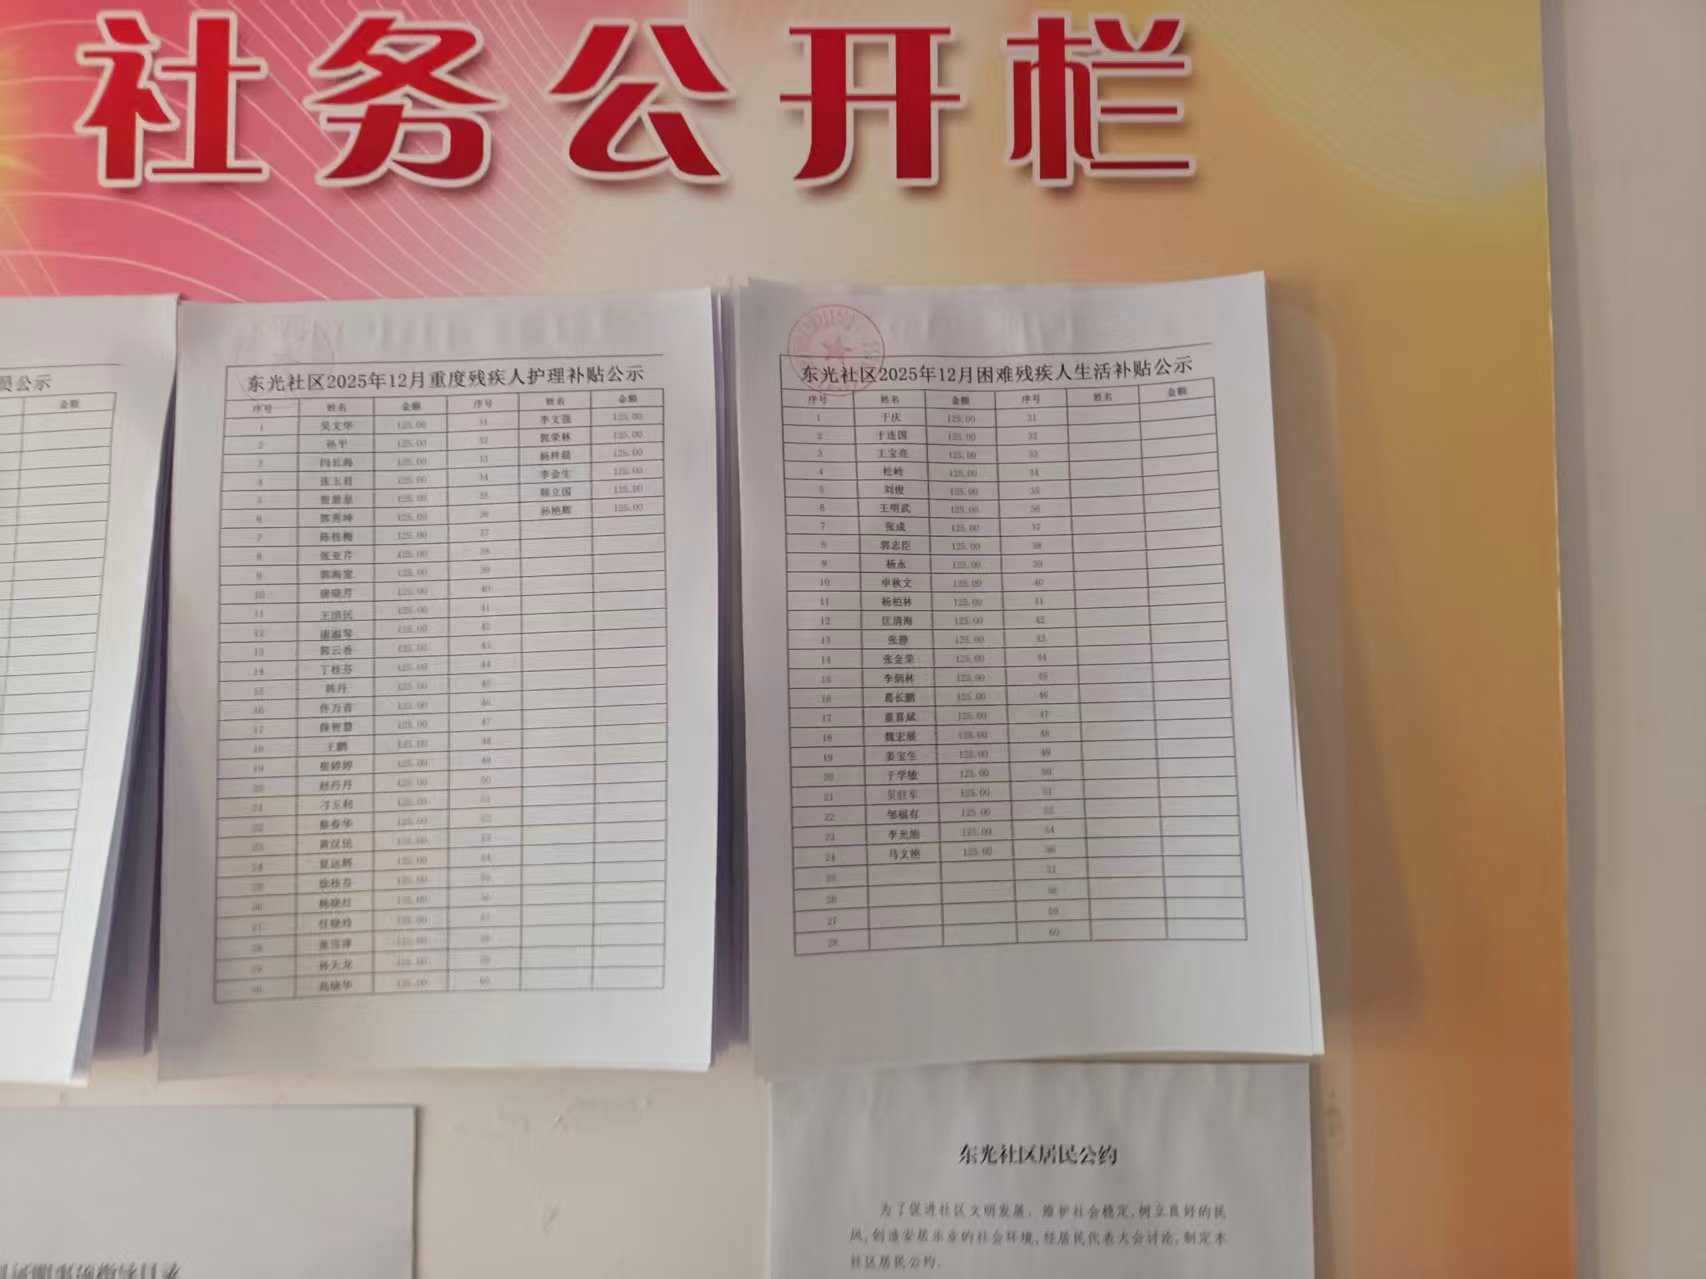 社务公开栏
公示
金额
东光社区2025年12月重度残疾人护理补贴公示
序号 姓名 金额 序号 姓名 金额
1 吴文华 125.00 31 李文强 125.00
2 杨平 125.00 32 郭荣林 125.00
3 闫长海 125.00 33 杨祥 125.00
4 张玉 125.00 34 李金生 125.00
5 125.00 35 韩立国 125.00
6 郭秀坤 125.00 36 孙艳辉 125.00
7 陈桂梅 125.00 37
8 张亚芹 125.00 38
9 郭海宽 125.00 39
10 晓芹 125.00 40
11 王清民 125.00 41
12 淑琴 125.00 42
13 郭云香 125.00 43
14 丁桂芬 125.00 44
15 韩丹 125.00 45
16 佟万喜 125.00 46
17 薛智慧 125.00 47
18 王鹏 125.00 48
19 婷婷 125.00 49
20 赵丹丹 125.00 50
21 刁玉利 125.00 51
22 春华 125.00 52
23 黄汉民 125.00 53
24 125.00 54
25 徐桂芬 125.00 55
26 杨晓红 125.00 56
27 任晓玲 125.00 57
28 125.00 58
29 孙大龙 125.00 59
30 高晓华 125.00 60
东光社区2025年12月困难残疾人生活补贴公示
序号 姓名 金额 序号 姓名 金额
1 于庆 125.00 31
2 于连国 125.00 32
3 王宝亮 125.00 33
4 松岭 125.00 34
5 刘俊 125.00 35
6 王明武 125.00 36
7 张成 125.00 37
8 郭志臣 125.00 38
9 杨永 125.00 39
10 申秋文 125.00 40
11 杨柏林 125.00 41
12 匡清海 125.00 42
13 张静 125.00 43
14 张金荣 125.00 44
15 李炳林 125.00 45
16 葛长鹏 125.00 46
17 董斌 125.00 47
18 魏宏展 125.00 48
19 姜宝生 125.00 49
20 于学敏 125.00 50
21 吴红军 125.00 51
22 邹福有 125.00 52
23 李光 125.00 54
24 马文艳 125.00 56
25 51
26 58
27 59
28 60
东光社区居民公约
为了促进社区文明发展，维护社会稳定,树立良好的民
风,创造安居乐业的社会环境,经居民代表大会讨论,制定本
社区居民公约。